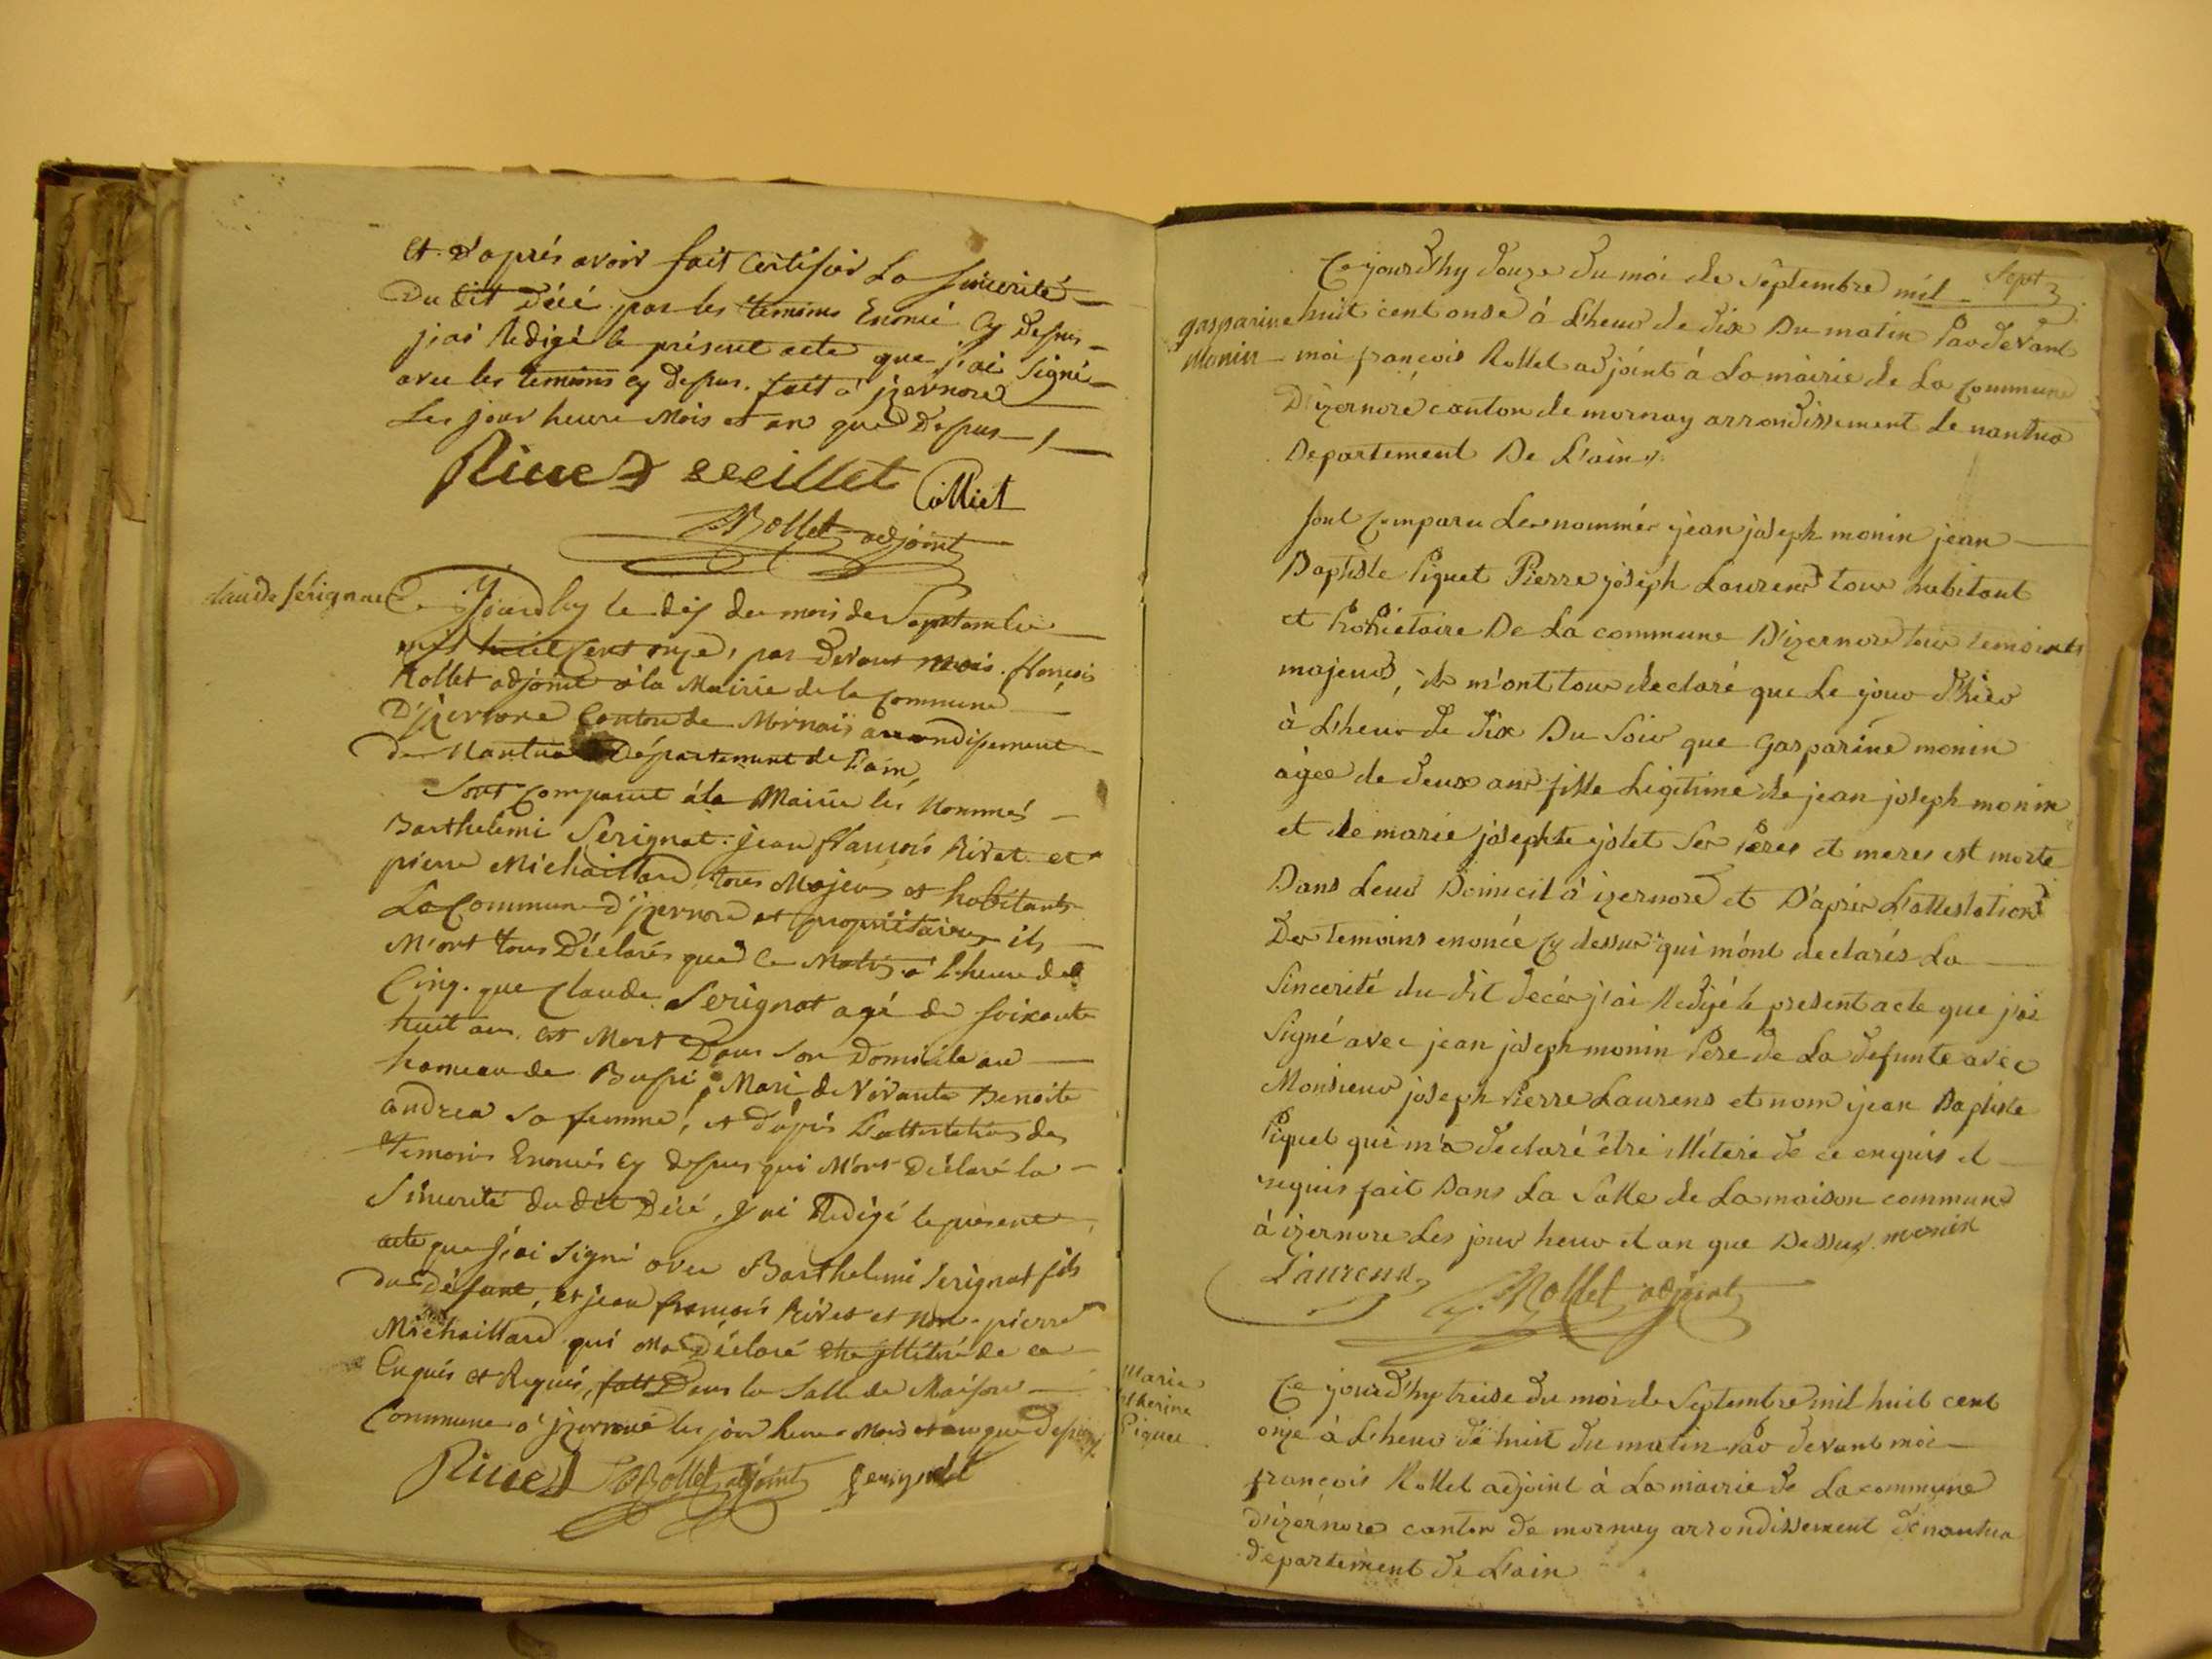 et d'aprés avoir fait Certifier La sincerité
Du dit Décé par les temoins Enoncé Cy Dessus
j'ai Redigé le présent acte que j'ai Signé
avec les temoins cy dessus. fait a' jzernore
Les jour heure Mois et an que Dessus
Rivet seillet Colliet
Rollet adjoint
Claude Sérignat
Ce Yjourdhy le dix du mois de Septembre
mil huit Cent onze, par devant moi. françois
Rollet adjoint à la Mairie de la Commune
D'jzernore Canton de Mornaÿ arrondissement
de Nantua Département de l'ain,
Sont Comparut à la Mairie les Nommés
Barthelemi Serignat. jean françois Rivet et
pierre Michaillard, tous Majeurs et habitants
La Commune d'jzernore et propriétaires ils
M'ont tous Déclarés que Ce Matin a' l'heure de
Cinq. que Claude Serignat agé de soixante
huit ans. est Mort Dans son Domicile au
hameau de Bussi, Mari de Vivante Benoite
andrea sa femme, et d'aprés L'attestation des
temoins Enoncés Cy dessus qui M'ont Déclaré la
Sincerité du dit Décé, j'ai Redigé le présent
acte que j'ai signé avec Barthelemi Serignat fils
du Défunt, et jean françois Rivet et Non pierre
Michaillard qui Ma Déclaré être jllitéré de ce
Enquis et Requis, fait Dans la Salle de Maison
Commune a' jzernore les jour heure Mois et an que Dessus
Rivet Rollet adjoint Serignat
Sept
Ce jourd'hy douze du moi de Septembre mil
gasparine
monin
huit cent onse à L'heur de dix Du matin Par devant
moi françois Rollet adjoint à La mairie de La Commune
D'izernore canton de mornay arrondissement de nantua
Departement De L'ain
sont Comparu Les nommés jean joseph monin jean
Baptiste Piquet Pierre joseph Laurens tous habitant
et Propietaire De La commune D'izernore tous temoints
majeurs, ils m'ont tous declaré que Le jour d'hier
à L'heur de dix Du Soir que Gasparine monin
agée de deux ans fille Legitime de jean joseph monin
et de marie josephte jolet Ses Peres et meres est morte
Dans Leur Domicil à izernore et D'aprés L'attestation
Des Temoins enoncé Cy dessus qui m'ont declarés La
Sincerité du dit decés j'ai Redigé le present acte que j'ai
Signé avec jean joseph monin Pere de La defunte avec
Monsieur joseph Pierre Laurens et nom jean Baptiste
Piquet qui m'a declaré être illiteré de ce enquis et
requis fait Dans La Salle de La maison commune
à izernore Les jour heur et an que Dessus monin
Laurens Rollet adjoint
Marie
Piquet
Ce jourd'hy treise du moi de Septembre mil huit cent
onze à L'heur de huit du matin Par devant moi
françois Rollet adjoint à La mairie de La commune
d'izernore canton de mornay arrondissement de nantua
departement de L'ain